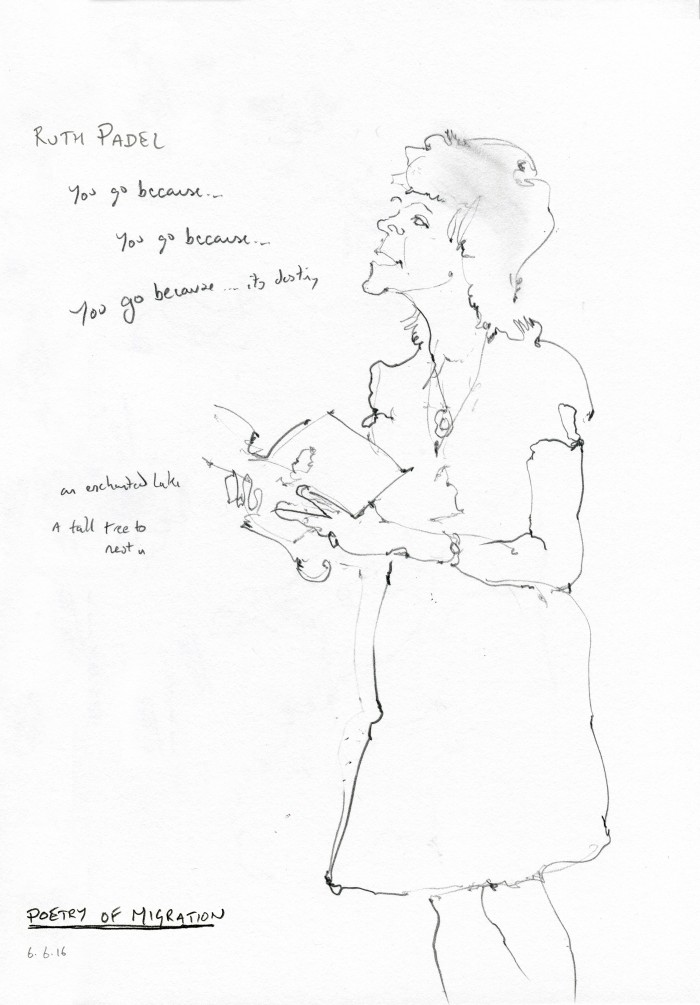 RUTH PADEL
You go because...
You go because...
You go because ... its destiny
an enchanted lake
A tall tree to
nest in
POETRY OF MIGRATION
6.6.16